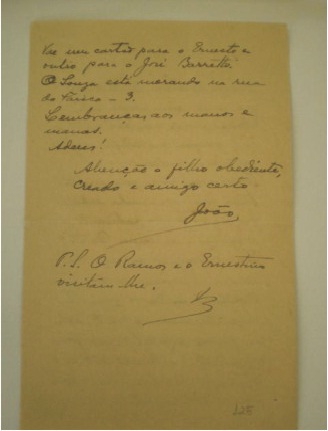 Vae um cartão para o Ernesto e
outro para o José
O Souza está morando na rua
do – 3.
Lembranças aos manos e
manas.
Adeus!
Abençôe o filho obediente,
creado e amigo certo
João
P.S. O Ramos e o Ernestino
visitam-lhe.